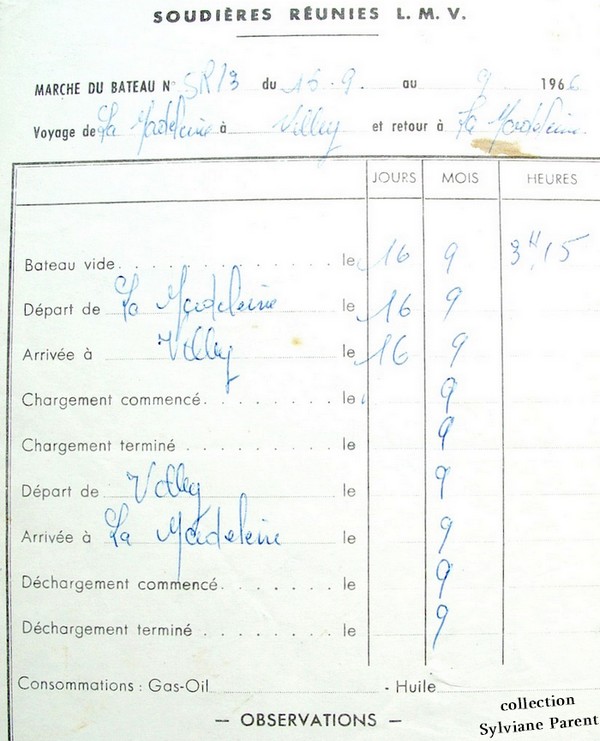 SOUDIÈRES RÉUNIES L. M. V.
MARCHE DU BATEAU N° SR13 du 15.9 au 9 1966
Voyage de La Madeleine à Villey et retour à La Madeleine.
JOURS MOIS HEURES
Bateau vide. le 16 9 3H15
Départ de La Madeleine le 16 9
Arrivée à Villey le 16 9
Chargement commencé. le 9
Chargement terminé le 9
Départ de Villey le 9
Arrivée à La Madeleine le 9
Déchargement commencé. le 9
Déchargement terminé le 9
Consommations : Gas-Oil - Huile
— OBSERVATIONS —
collection
Sylviane Parent